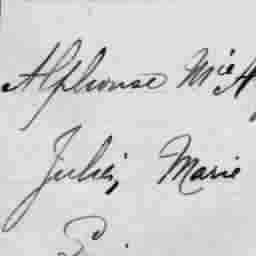 Alphonse Mie A
Julie, Marie